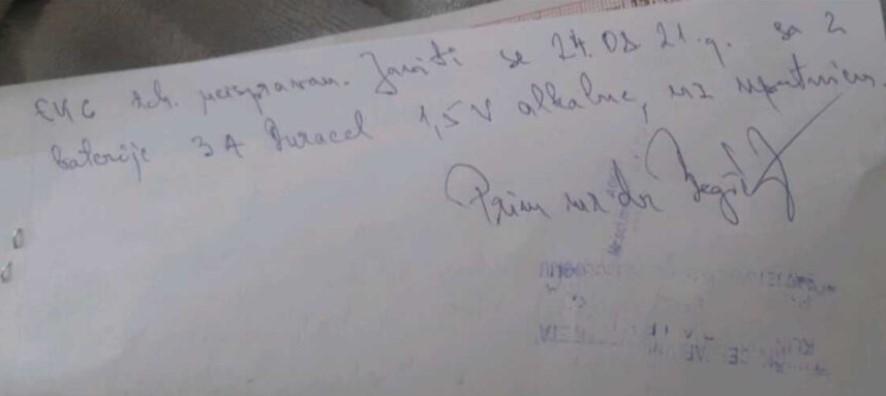 EKG teh. neispravan. Javiti se 24.08.21.g. sa 2
baterije 3A Duracel 1,5V alkalne, uz uputnicu.
Prim mr dr Begić